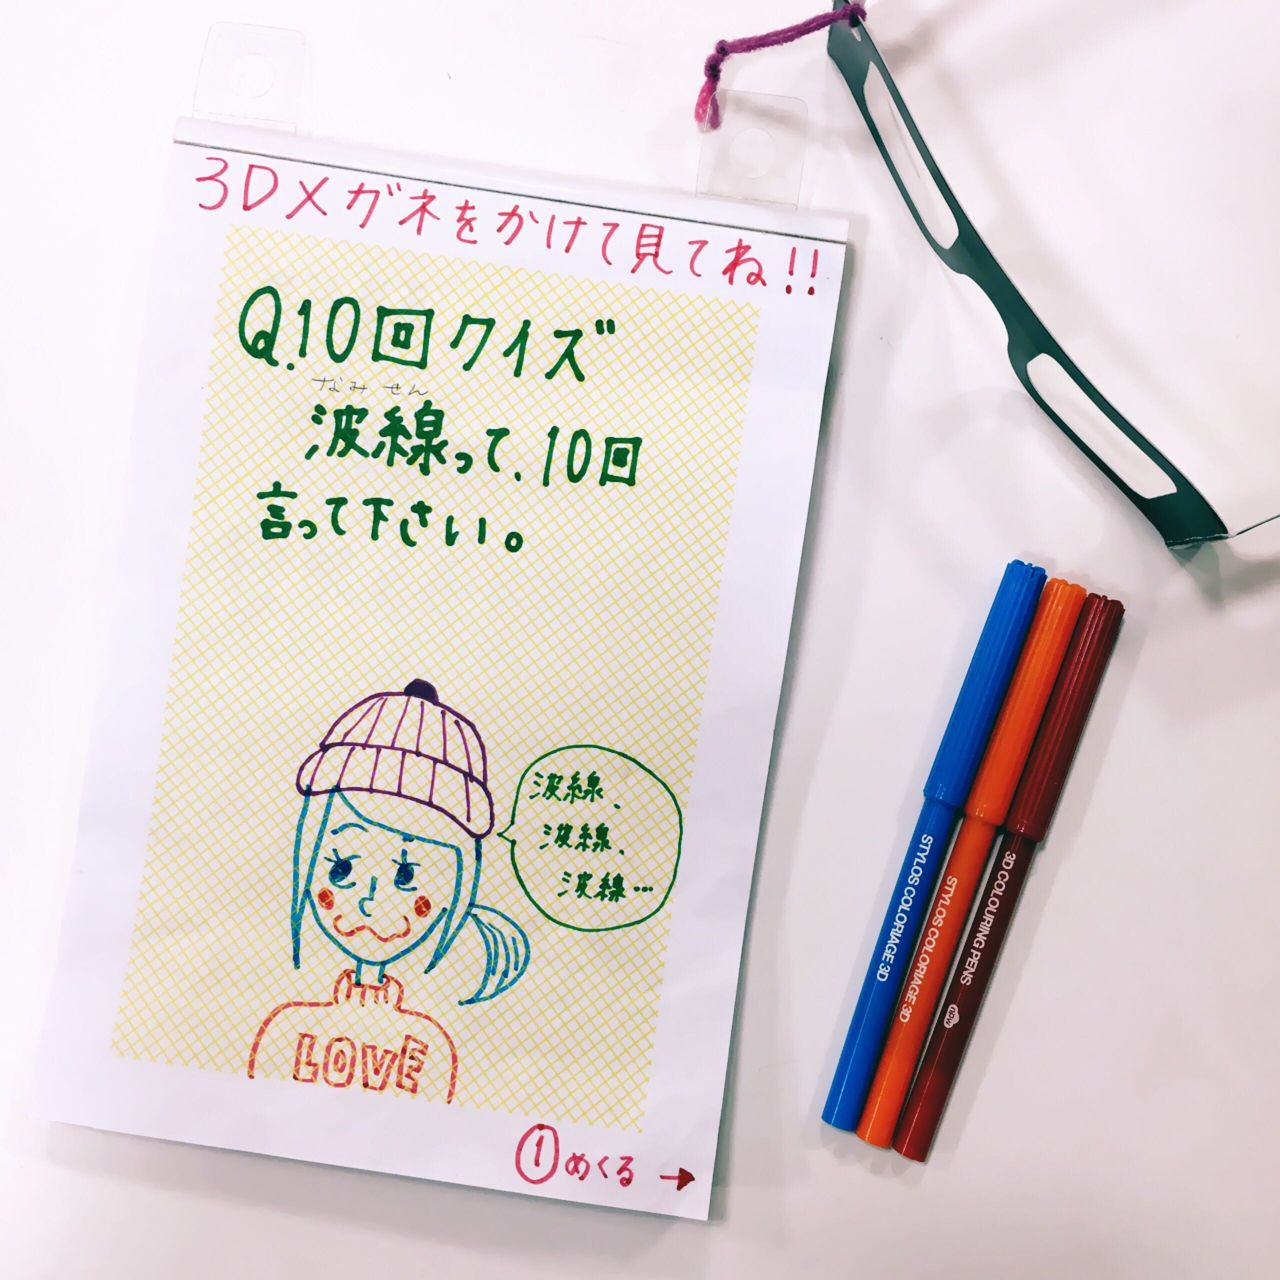 3Dメガネをかけて見てね!!
Q.10回クイズ
なみせん
波線って、10回
言って下さい。
波線、
波線、
波線…
LOVE
①めくる→
STYLOS COLORIAGE 3D
STYLOS COLORIAGE 3D
3D COLOURING PENS
new